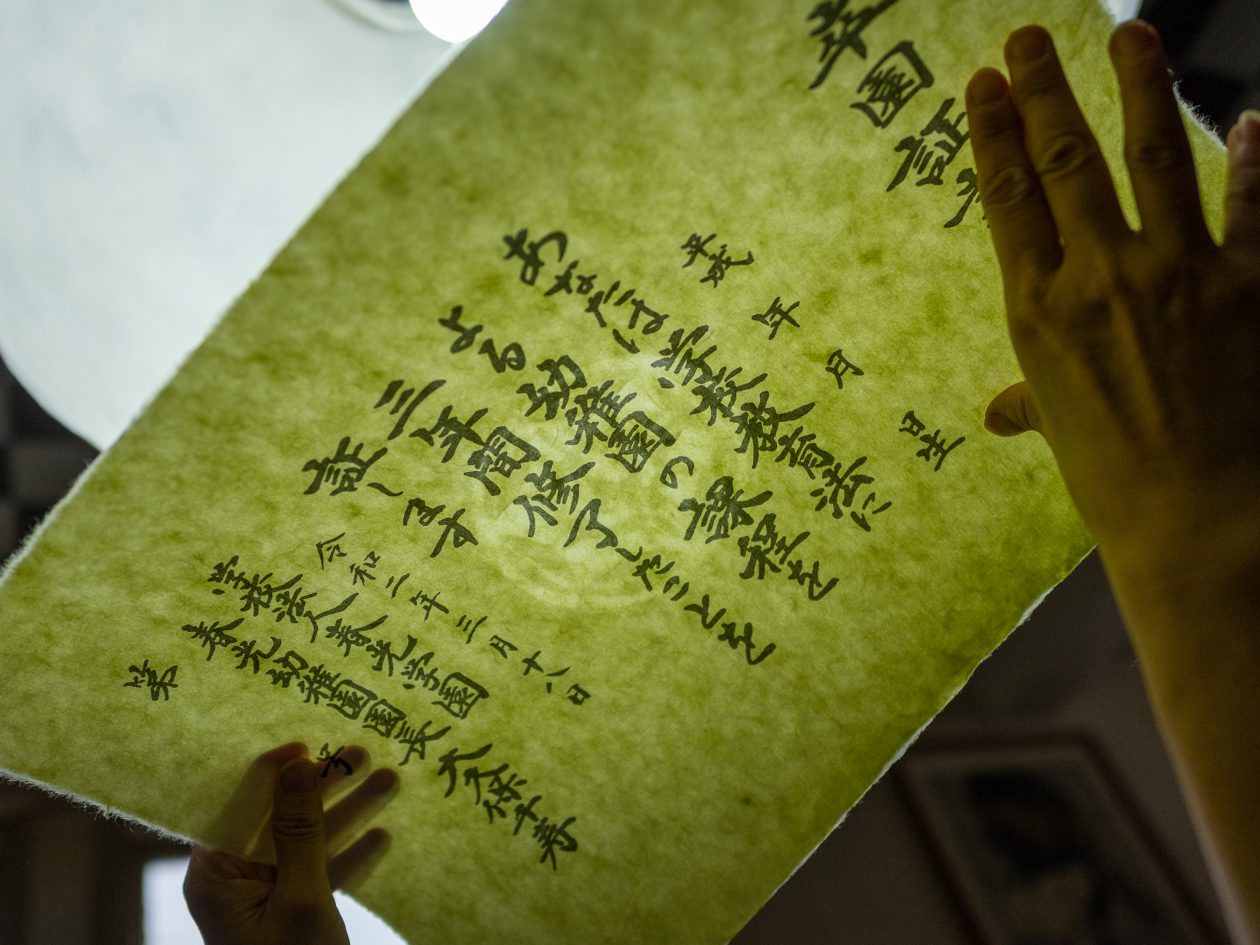 卒園証
平成　年　月　日生
あなたは学校教育法に
よる幼稚園の課程を
三年間修了したことを
証します
令和二年三月十八日
学校法人春光学園
春光幼稚園園長大久保千寿
第　号